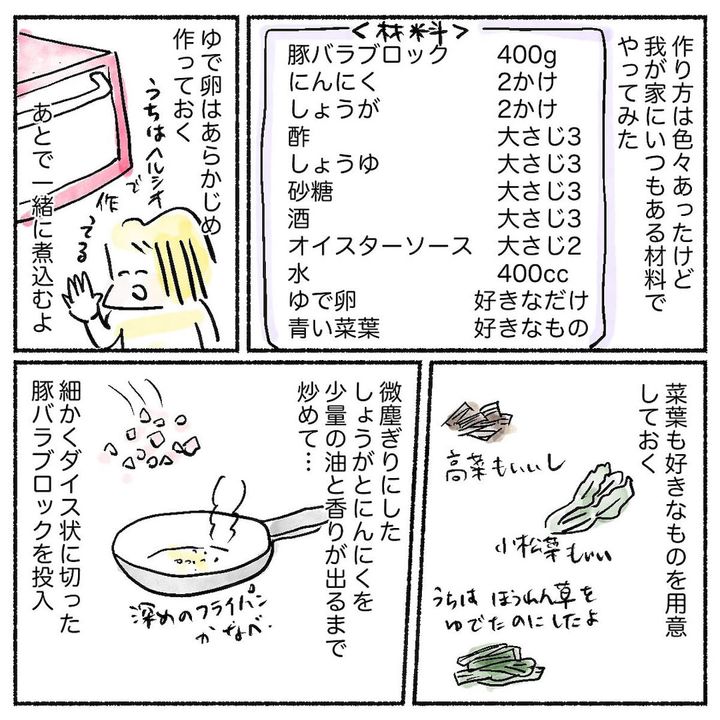 作り方は色々あったけど
我が家にいつもある材料で
やってみた
<材料>
豚バラブロック 400g
にんにく 2かけ
しょうが 2かけ
酢 大さじ3
しょうゆ 大さじ3
砂糖 大さじ3
酒 大さじ3
オイスターソース 大さじ2
水 400cc
ゆで卵 好きなだけ
青い菜葉 好きなもの
ゆで卵はあらかじめ
作っておく
うちはヘルシオ
で作
てる
あとで一緒に煮込むよ
菜葉も好きなものを用意
しておく
高菜もいいし
小松菜もいい
うちは ほうれん草を
ゆでたのにしたよ
微塵ぎりにした
しょうがとにんにくを
少量の油と香りが出るまで
炒めて…
深めのフライパン
かなべ
細かくダイス状に切った
豚バラブロックを投入